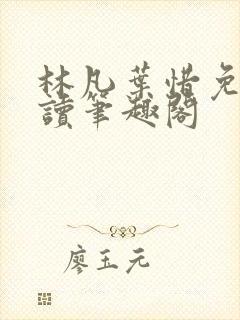 林凡葉惜免
讀筆趣閣
廖玉元